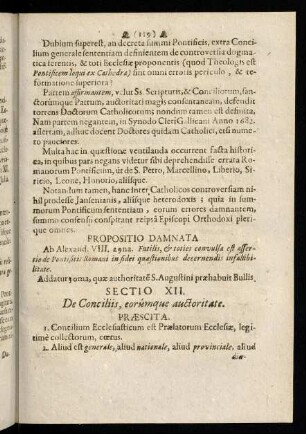 (119)
Dubium superest, an decreta summi Pontificis, extra Concilium
generale sententiam definientem de controversia dogmatica
ferentis, & toti Ecclesiæ proponentis (quod Theologis est
Pontificem loqui ex Cathedra) sint omni erroris periculo, & reformatione
superiora?
Partem affirmantem, velut Ss. Scripturis, & Conciliorum, sanctorúmque
Patrum, auctoritati magis consentaneam, defendit
torrens Doctorum Catholicorum; nondum tamen est definita.
Nam partem negantem, in Synodo Cleri Gallicani Anno 1682.
assertam, adhuc docent Doctores quidam Catholici, etsi numero
pauciores.
Multa hac in quæstione ventilanda occurrunt facta historica,
in quibus pars negans videtur sibi deprehendisse errata Romanorum
Pontificum, ut de S. Petro, Marcellino, Liberio, Siricio,
Leone, Honorio, aliisque.
Notandum tamen, hanc inter Catholicos controversiam nihil
prodesse Jansenianis, aliisque heterodoxis; quia in summorum
Pontificum sententiam, eorum errores damnantem,
summo consensu conspirant reipsâ Episcopi Orthodoxi plerique
omnes.
PROPOSITIO DAMNATA
Ab Alexand. VIII. 29na. Futilis, & toties convulsa est assertio
de Pontificis Romani in fidei quæstionibus decernendis infallibilitate.
Addatur 30ma, quæ authoritatē S. Augustini præhabuit Bullis.
SECTIO XII.
De Conciliis, eorúmque auctoritate.
PRÆSCITA.
1. Concilium Ecclesiasticum est Prælatorum Ecclesiæ, legitimé
collectorum, cœtus.
2. Aliud est generale, aliud nationale, aliud provinciale, aliud